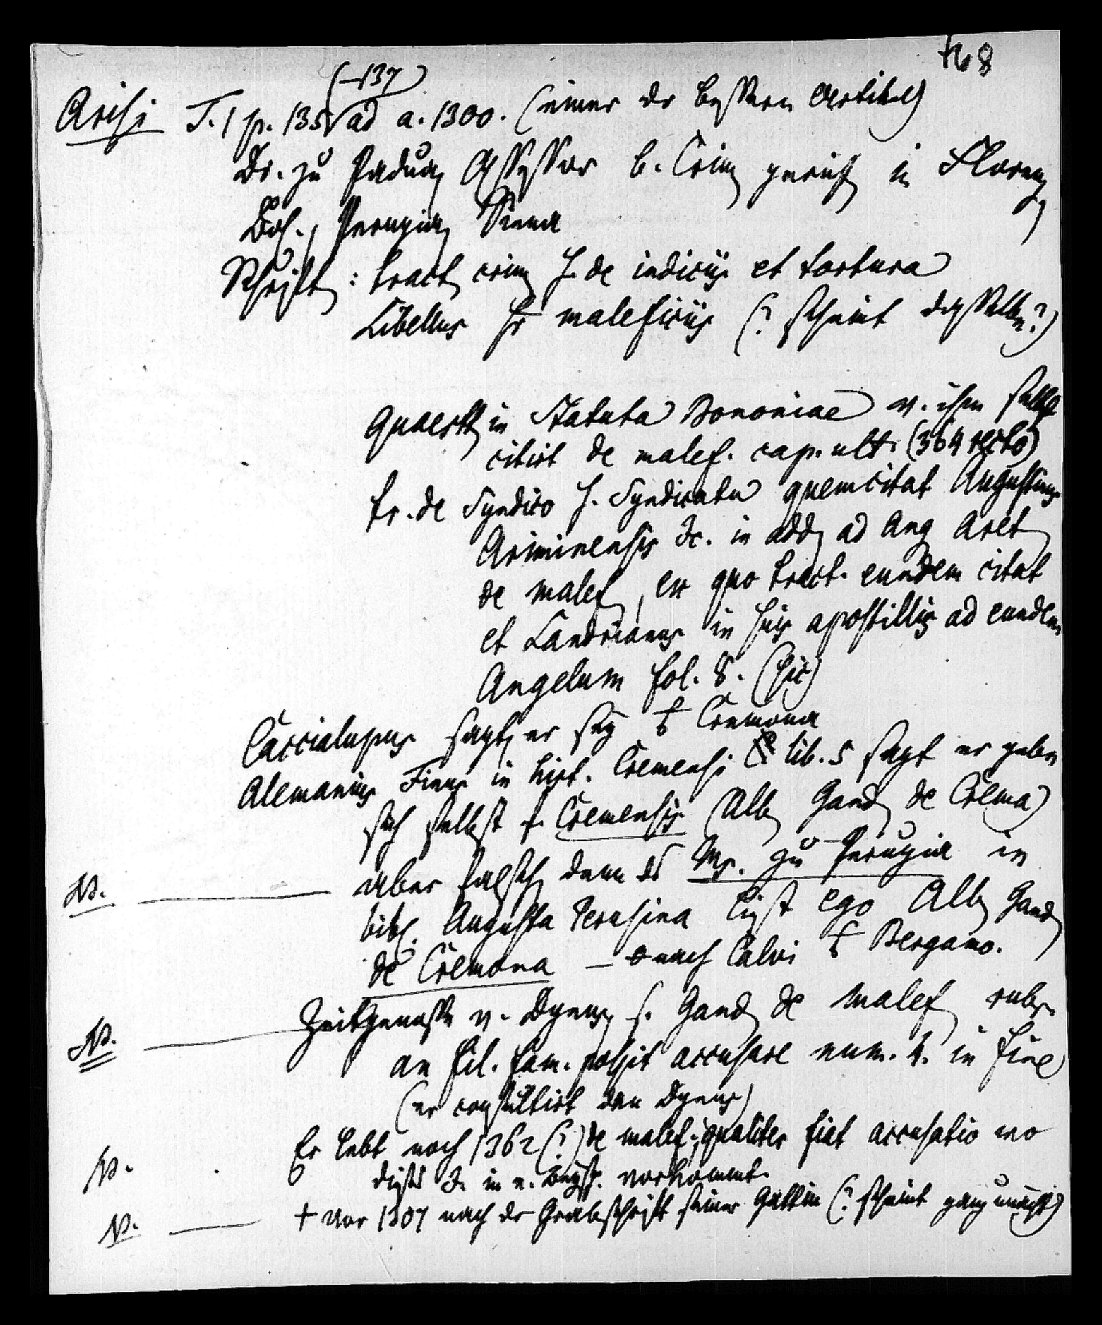 168
(–137)
Arisi T. 1 p. 135 ad a. 1300. (einer der bessern Artikel)
Dr. zu Padua, Assessor b. Crim gericht in Florenz,
Bol., Perugia, Siena
Schrift: tract. crim. s. de indiciis et tortura
Libellus sr maleficiis (? scheint dasselbe?)
Quaestt. in Statuta Bononiae v. ihm selbst
citirt de malef. cap. ult. (364 recto)
tr. de Syndico s. Syndicatu quem citat Augustinus
Ariminensis &c. in add. ad Ang. Aret.
de malef., ex quo tract. eundem citat
et Landrianus in suis apostillis ad eundem
Angelum fol. 8. (sic)
Caccialupus sagt, er sey v Cremona
Alemanius Finus in hist. Cremensi lib. 5 sagt er gebe
sich selbst f. Cremensis (Alb. Gand. de Crema)
NB. — aber falsch, denn ds Ms. zu Perugia in
bibl. Augusta Perusina liest ego Alb. Gand.
de Cremona — nach Calvi v Bergamo.
NB. — Zeitgenosse v. Dynus, s. Gand. de malef. rubr.
an fil. fam. possit accusare num. 4. in fine
(er consultirt den Dynus)
NB. Er lebt noch 1362 (?) de malef.; qualiter fiat accusatio wo
dieses J. in e. Beysp. vorkommt.
NB. — † vor 1307 nach der Grabschrift seiner Gattin (? scheint ganz unächt)